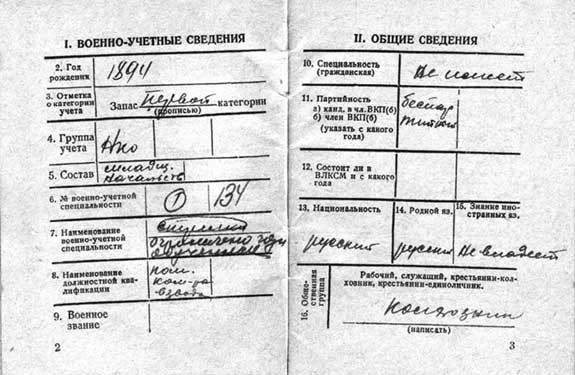 I. ВОЕННО-УЧЕТНЫЕ СВЕДЕНИЯ
2. Год
рождения
1894
3. Отметка
о категории
учета
Запас Первой категории
(прописью)
4. Группа
учета
5. Состав
младш.
начальств
6. № военно-учетной
специальности
1 134
7. Наименование
военно-учетной
специальности
ограниченно годн
обученный
8. Наименование
должностной ква-
лификации
пом.
ком-ра
взвода
9. Военное
звание
2
II. ОБЩИЕ СВЕДЕНИЯ
10. Специальность
(гражданская)
Не имеет
11. Партийность
а) канд. в чл. ВКП(б)
б) член ВКП(б)
(указать с какого
года)
беспар
тийный
12. Состоит ли в
ВЛКСМ и с какого
года
13. Национальность
русский
14. Родной яз.
русский
15. Знание ино-
странных яз.
Не владеет
16. Обще-
ственная
группа
Рабочий, служащий, крестьянин-кол-
ховник, крестьянин-единоличник.
колхозник
(написать)
3